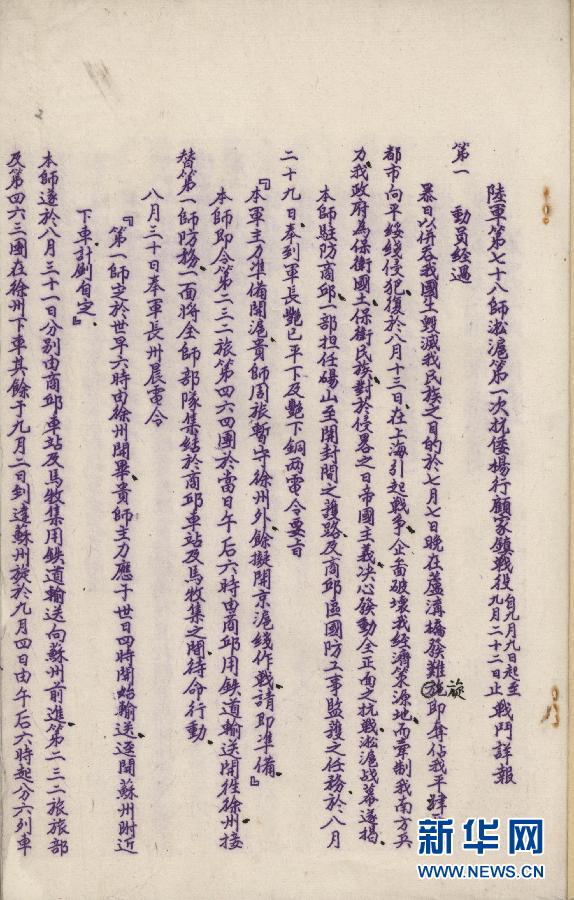 陸軍第七十八師淞滬第一次抗倭楊行顧家鎮戰役自九月九日起至九月二十二日止戰鬥詳報
第一 動員經過
暴日以併吞我國土毀滅我民族之目的於七月七日晚在蘆溝橋發難旋即奪佔我平肆
都市向平綏綫侵犯復於八月十三日在上海引起戰爭企啚破壞我經濟策源地而牽制我南方兵
力我政府為保衛國土保衛民族對於侵畧之日帝國主義决心發動全正面之抗戰淞滬战幕遂揭
本師駐防商邱一部担任碭山至開封間之護路及商邱區國防工事監護之任務於八月
二十九日奉到軍長艷已平下及艷下銅兩電令要旨
『本軍主力準備開滬貴師周旅暫守徐州外餘擬開京滬綫作戰請即準備』
本師即令第二三二旅第四六四團於當日午后六時由商邱用鉄道輸送開徃徐州接
替第一師防務一面將全師部隊集結於商邱車站及馬牧集之間待命行動
八月三十日奉軍長卅晨電令
『第一師定於世早六時由徐州開畢貴師主力應于世日四時開始輸送逕開蘇州附近
下車計劃自定』
本師遂於八月三十一日分別由商邱車站及馬牧集用鉄道輸送向蘇州前進第二三二旅旅部
及第四六三團在徐州下車其餘于九月二日到達蘇州旋於九月四日由午后六時起分六列車
新华网
WWW.NEWS.CN